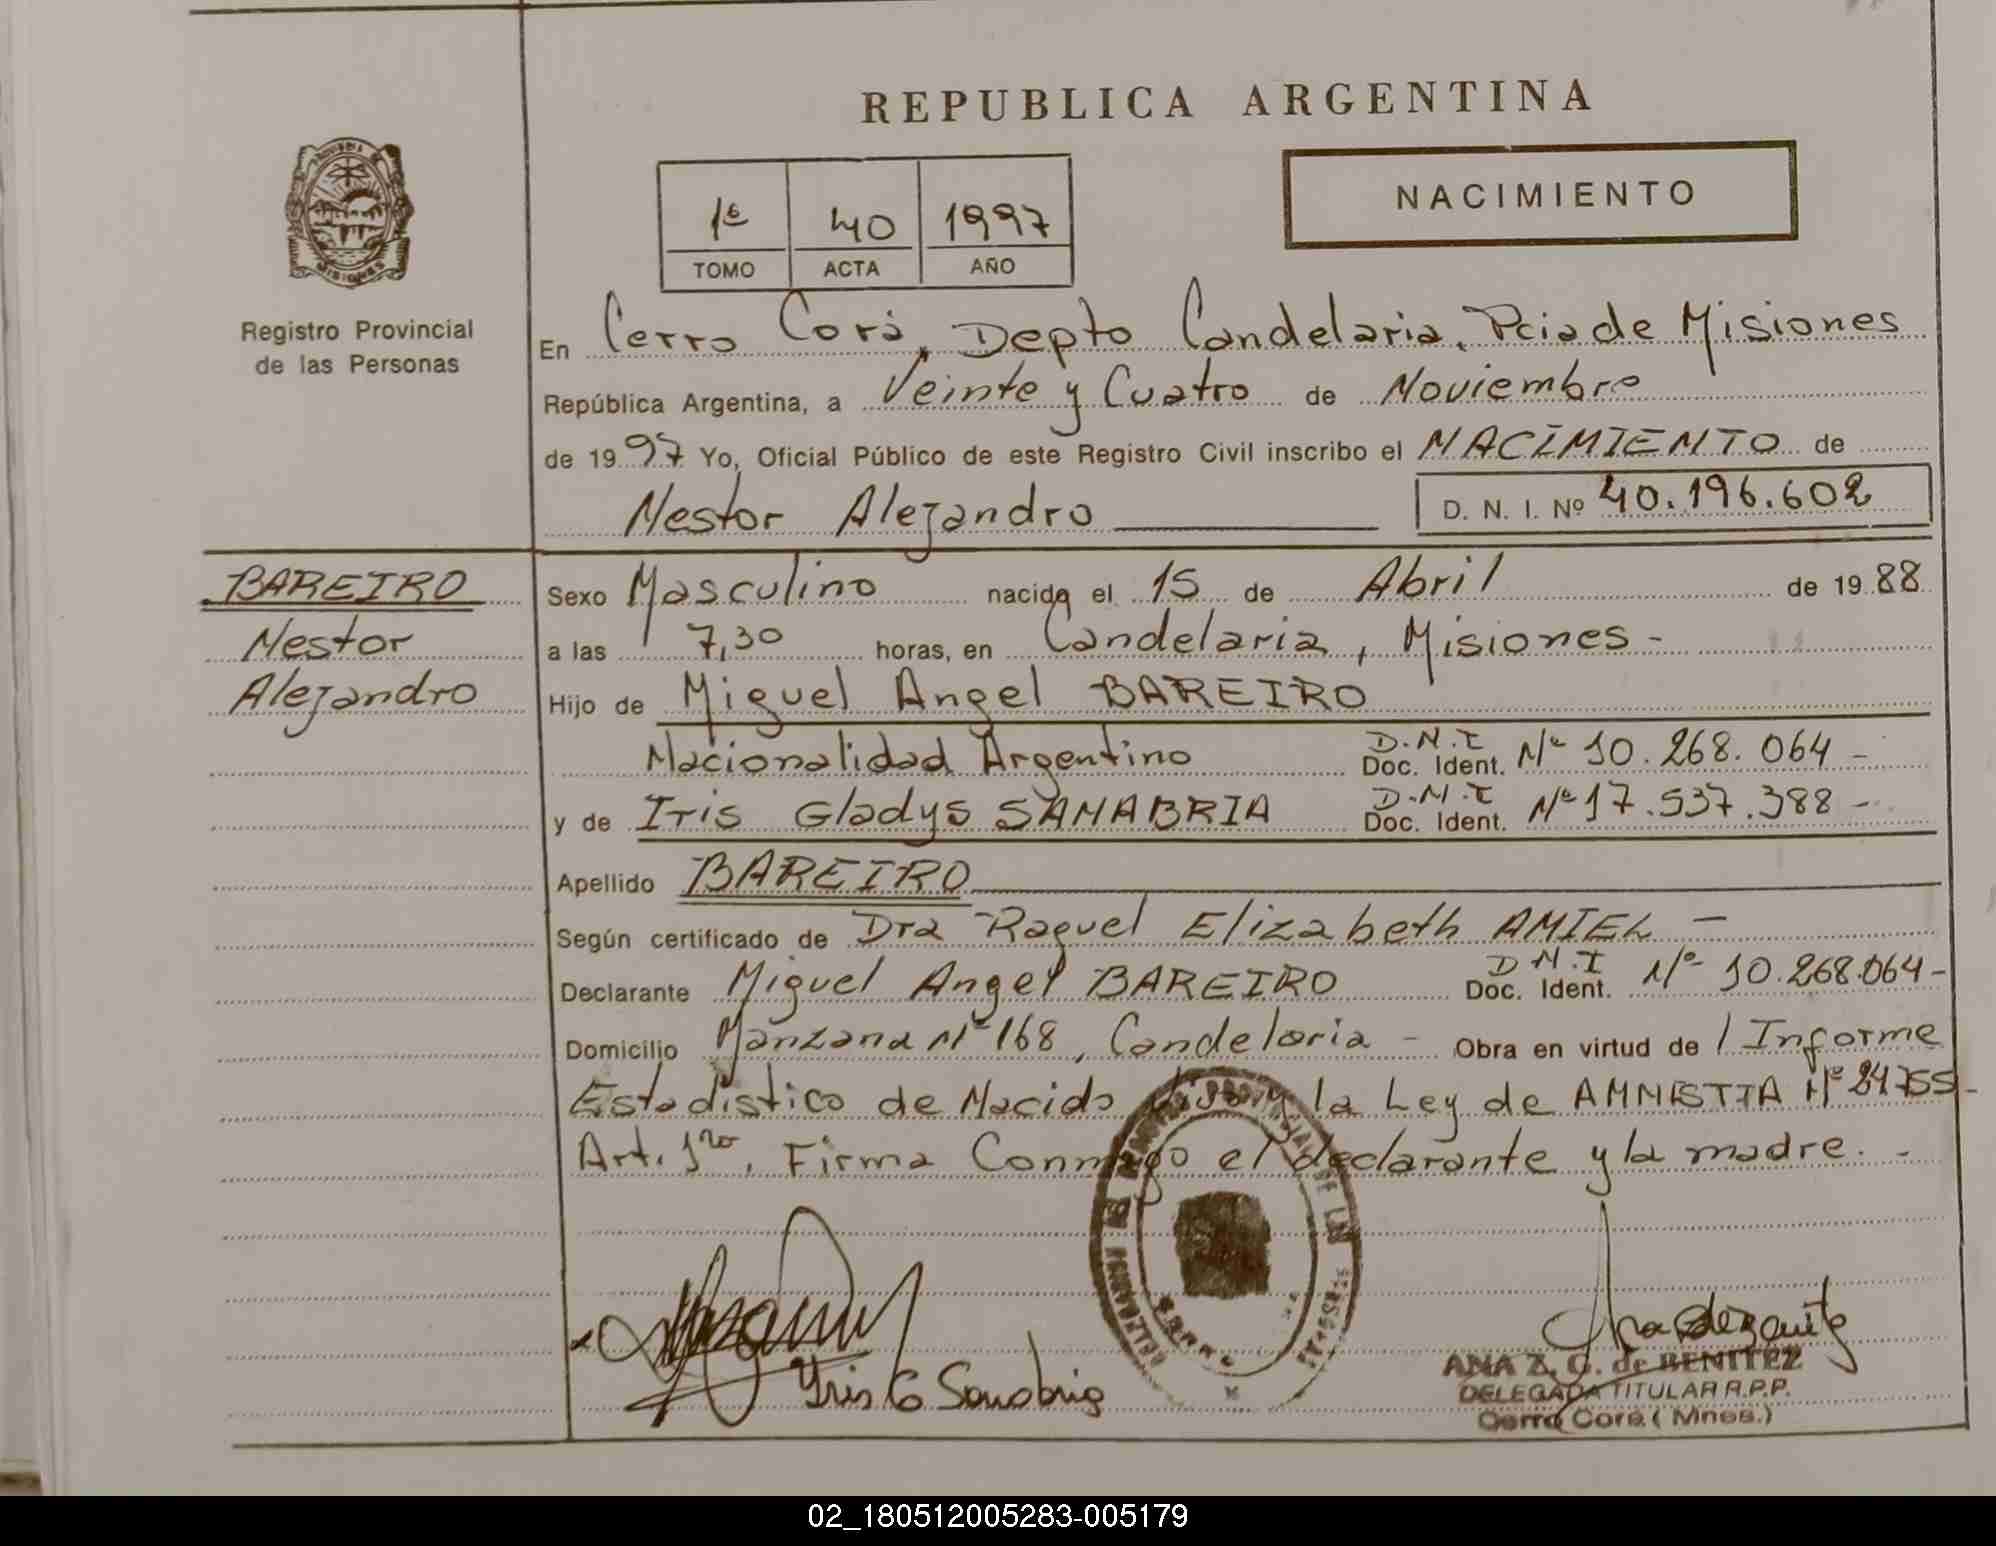 REPUBLICA ARGENTINA
NACIMIENTO
1º 40 1997
TOMO ACTA AÑO
Registro Provincial
de las Personas
En Cerro Corá, Depto Candelaria, Pcia de Misiones
República Argentina, a Veinte y Cuatro de Noviembre
de 1997 Yo, Oficial Público de este Registro Civil inscribo el NACIMIENTO de
Nestor Alejandro D. N. I. Nº 40.196.602
BAREIRO
Nestor
Alejandro
Sexo Masculino nacido el 15 de Abril de 1988
a las 7,30 horas, en Candelaria, Misiones -
Hijo de Miguel Angel BAREIRO
Nacionalidad Argentino D.N.I Doc. Ident. Nº 10.268.064 -
y de Iris Gladys SANABRIA D.N.I Doc. Ident. Nº 17.537.388 -
Apellido BAREIRO
Según certificado de Dra Raquel Elizabeth AMIEL -
Declarante Miguel Angel BAREIRO D N.I Doc. Ident. Nº 10.268.064 -
Domicilio Manzana Nº 168, Candelaria - Obra en virtud de / Informe
Estadistico de Nacido y la Ley de AMNISTIA Nº 24755 -
Art. 1ro, Firma Conmigo el declarante y la madre. -
Iris G Sanabria
ANA Z. G. de BENITEZ
DELEGADA TITULAR R.P.P.
Cerro Corá (Mnes.)
02_180512005283-005179